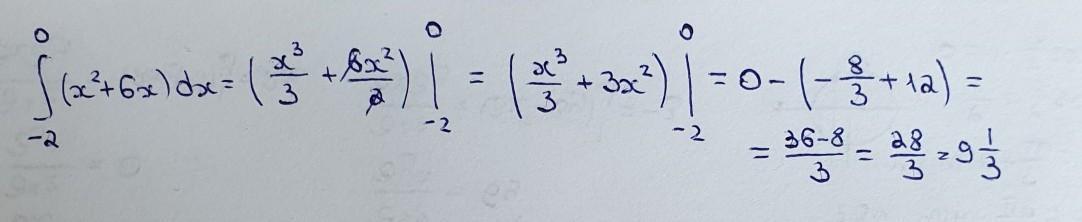 ∫_{-2}^{0} (x²+6x)dx = (x³/3 + 6x²/2) |_{-2}^{0} = (x³/3 + 3x²) |_{-2}^{0} = 0 - (-8/3 + 12) =
= 36-8/3 = 28/3 = 9 1/3